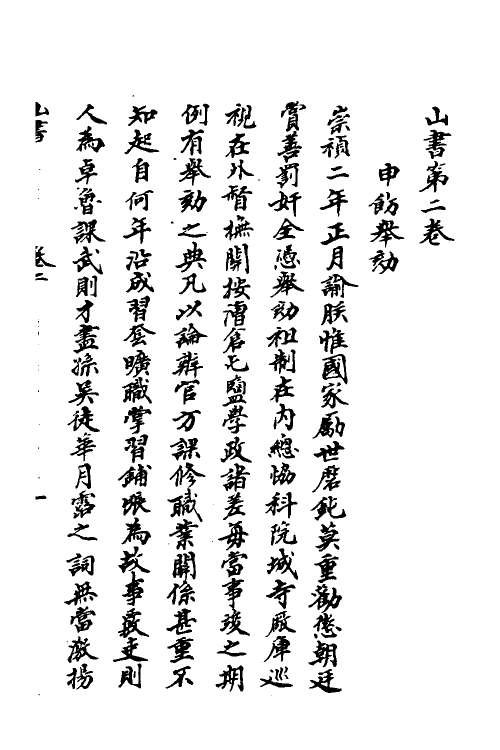 山書第二卷
申飭舉劾
崇禎二年正月諭朕惟國家勵世磨鈍莫重勸懲朝廷
賞善罰奸全憑舉劾祖制在內總協科院城寺廠庫巡
視在外督撫關按漕倉屯鹽學政諸差每當事竣之期
例有舉劾之典凡以論辨官方課修職業關係甚重不
知起自何年沿成習套曠職掌習鋪張為故事敘吏則
人為卓魯課武則才盡孫吳徒華月露之詞無當激揚
山書 卷二 一